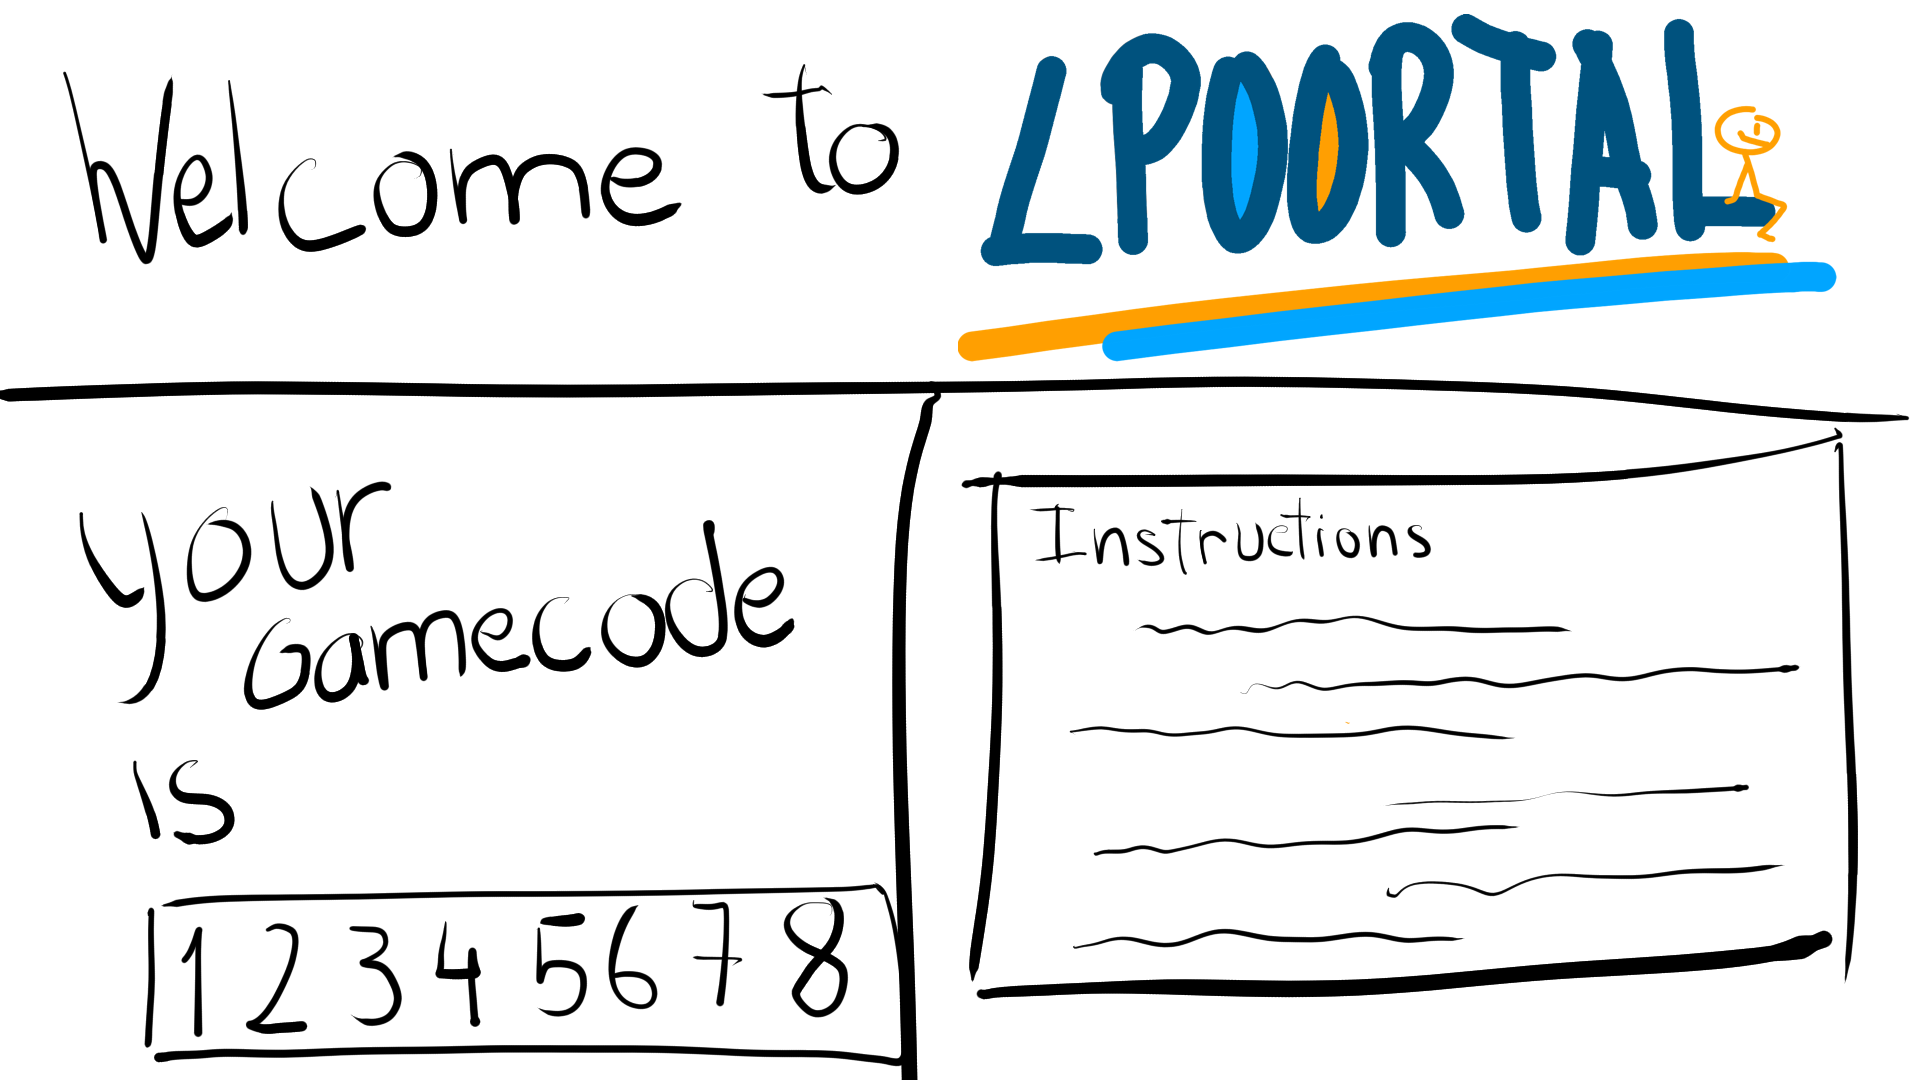 Welcome to LPOORTAL
Your
Gamecode
is
1 2 3 4 5 6 7 8
Instructions